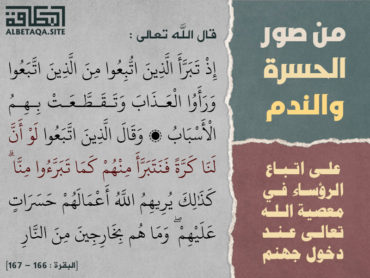 البطاقة
ALBETAQA.SITE
من صور
الحسرة
والندم
على اتباع
الرؤساء في
معصية الله
تعالى عند
دخول جهنم
قال الله تعالى :
إِذْ تَبَرَّأَ الَّذِينَ اتُّبِعُوا مِنَ الَّذِينَ اتَّبَعُوا
وَرَأَوُا الْعَذَابَ وَتَقَطَّعَتْ بِهِمُ
الْأَسْبَابُ ۞ وَقَالَ الَّذِينَ اتَّبَعُوا لَوْ أَنَّ
لَنَا كَرَّةً فَنَتَبَرَّأَ مِنْهُمْ كَمَا تَبَرَّءُوا مِنَّا ۗ
كَذَٰلِكَ يُرِيهِمُ اللَّهُ أَعْمَالَهُمْ حَسَرَاتٍ
عَلَيْهِمْ ۖ وَمَا هُم بِخَارِجِينَ مِنَ النَّارِ
[البقرة : 166 – 167]